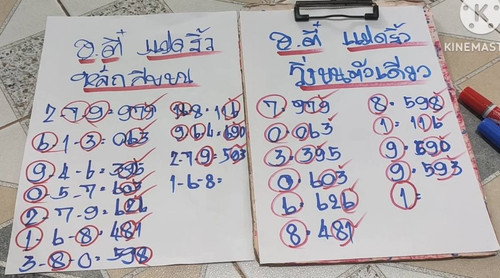 อ.ตี๋ แปดริ้ว
หลักสิบบน
2-7-9=979
6-1-3=063
9-4-6=395
0-5-7=603
2-7-9=626
1-6-8=481
3-8-0=598
1-6-8=116
9-6-6=690
2-7-9=593
1-6-8=
อ.ตี๋ แปดริ้ว
วิ่งบนตัวเดียว
7=979
0=063
3=395
0=603
6=626
8=481
8=598
1=116
9=690
9=593
1=
KINEMAST